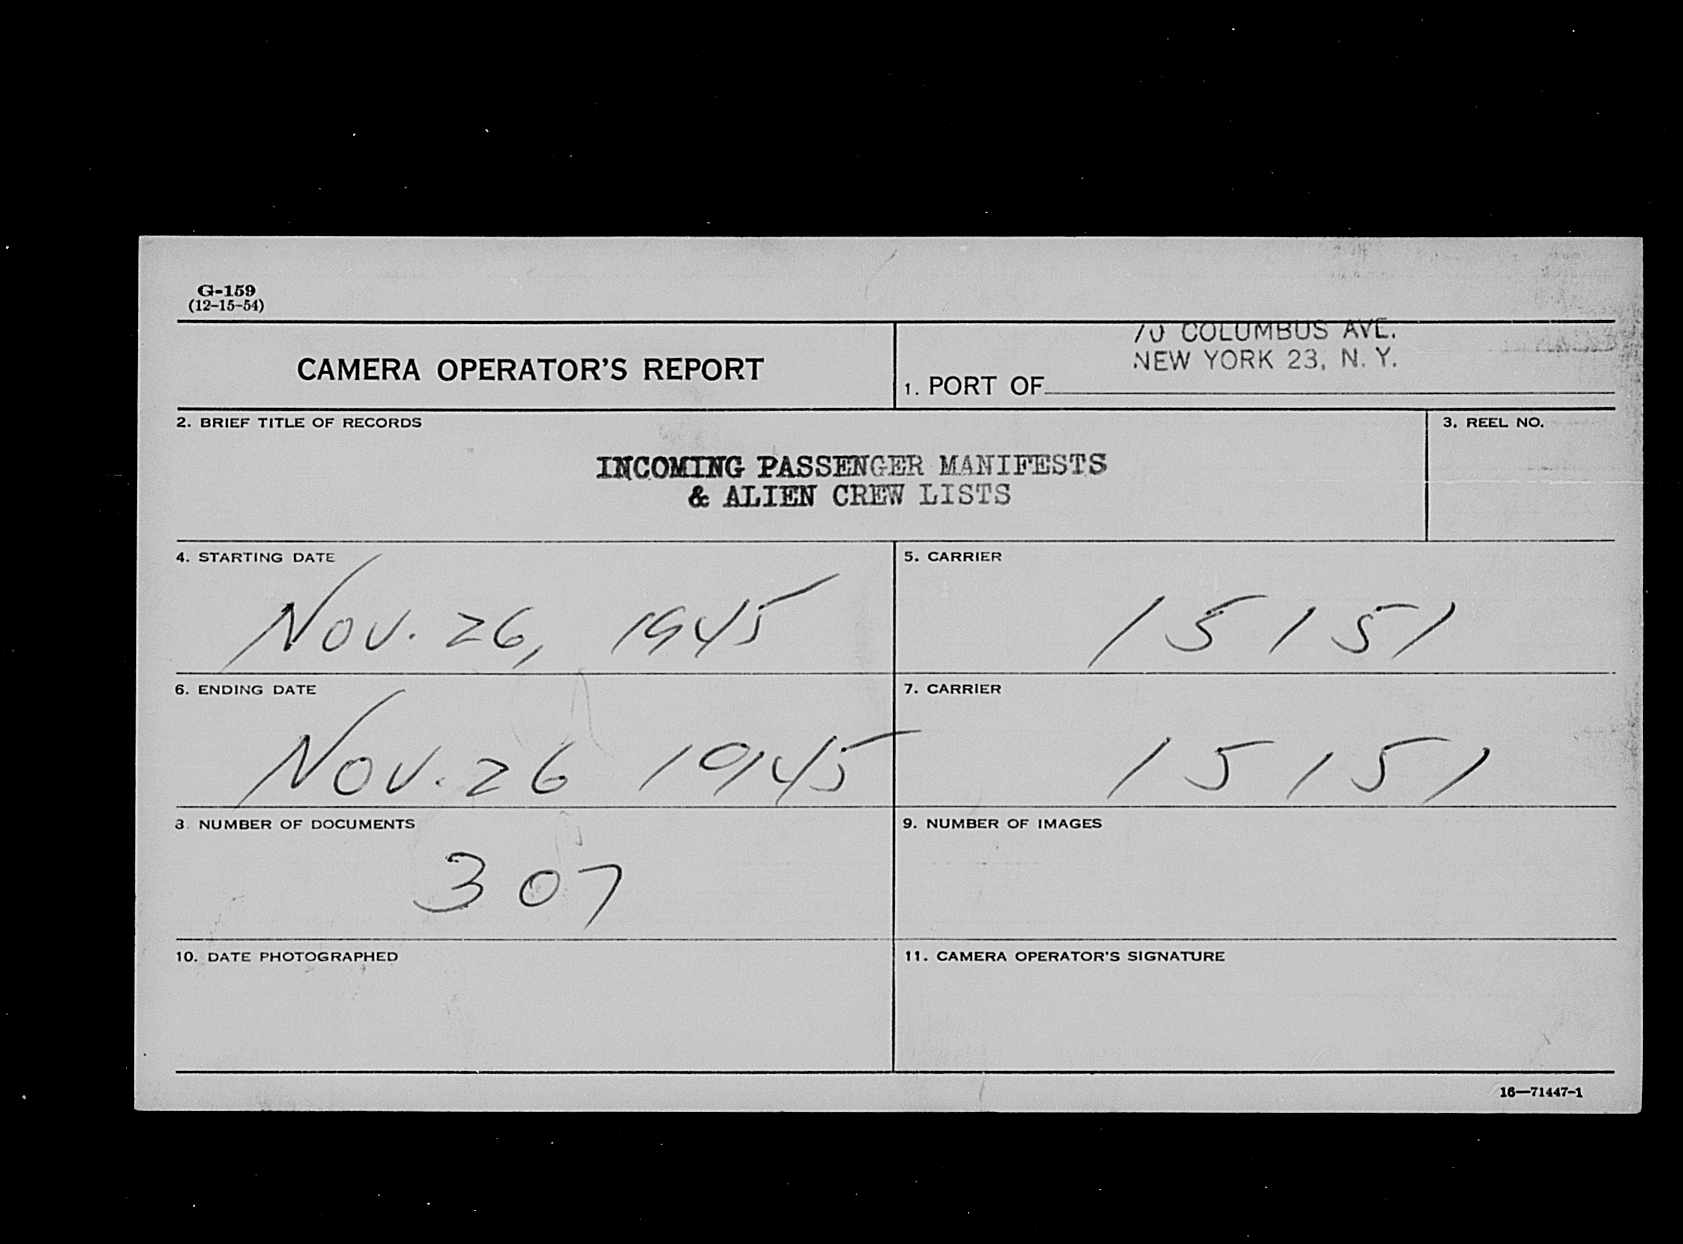 G-159
(12-15-54)
CAMERA OPERATOR'S REPORT
70 COLUMBUS AVE.
NEW YORK 23, N. Y.
1. PORT OF
2. BRIEF TITLE OF RECORDS
3. REEL NO.
INCOMING PASSENGER MANIFESTS
& ALIEN CREW LISTS
4. STARTING DATE
Nov. 26, 1945
5. CARRIER
15151
6. ENDING DATE
Nov. 26 1945
7. CARRIER
15151
8. NUMBER OF DOCUMENTS
307
9. NUMBER OF IMAGES
10. DATE PHOTOGRAPHED
11. CAMERA OPERATOR'S SIGNATURE
16—71447-1